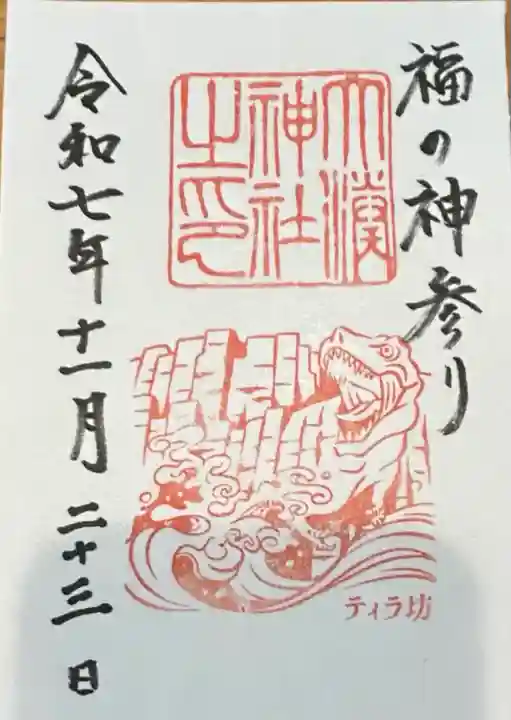 福の神参り
大湊
神社
之印
ティラ坊
令和七年十一月二十三日